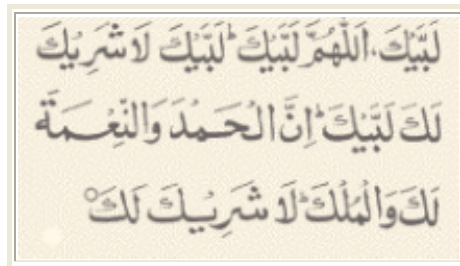 لَبَّيْكَ، اَللّٰهُمَّ لَبَّيْكَ ؕ لَبَّيْكَ لَا شَرِيْكَ
لَكَ لَبَّيْكَ ؕ اِنَّ الْحَـمْدَ وَالنِّعْـمَةَ
لَكَ وَالْمُلْكَ ؕ لَا شَرِيْـكَ لَكَ ۟